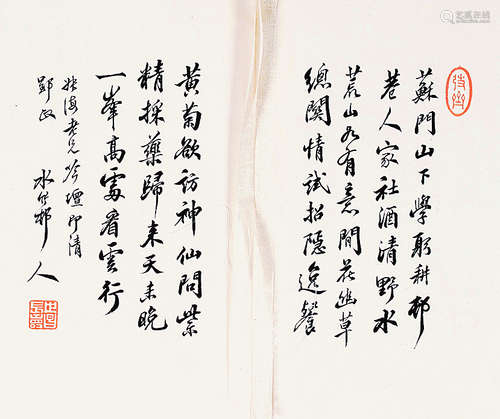 蘇門山下學躬耕邨
巷人家社酒清野水
荒山多有意閒花幽草
總關情試招隱逸餐
黃菊欲訪神仙問紫
精採藥歸来天未晚
一峯高處看雲行
老兄吟壇即清
郢政
邨人